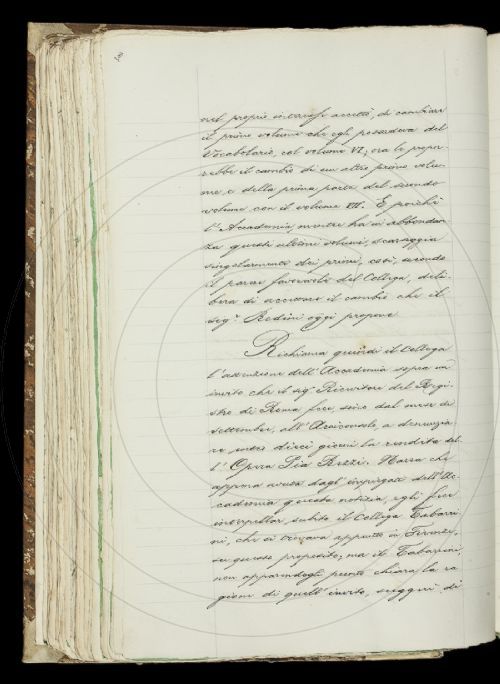 nel proprio interesse accettò, di cambiare
il primo volume che egli possedeva del
Vocabolario, col volume VI, ora le propor-
rebbe il cambio di un altro primo volu-
me, e della prima parte del secondo
volume con il volume VII. E poichè
l'Accademia, mentre ha in abbondan-
za questi ultimi volumi, scarseggia
singolarmente dei primi, così, secondo
il parere favorevole del Collega, deli-
bera di accettare il cambio che il
sig.r Bedini oggi propone.
Richiama quindi il Collega
l'attenzione dell'Accademia sopra un
invito che il sig. Ricevitore del Regi-
stro di Roma fece, sino dal mese di
settembre, all'Arciconsolo a denunzia-
re entro dieci giorni la rendita del-
l'Opera Pia Rezzi. Narra che
appena avuta dagl'impiegati dell'Ac-
cademia questa notizia, egli fece
interpellar subito il Collega Tabarri-
ni, che si trovava appunto in Firenze,
su questo proposito; ma il Tabarrini,
non apparendogli punto chiara la ra-
gione di quell'invito, suggerì di